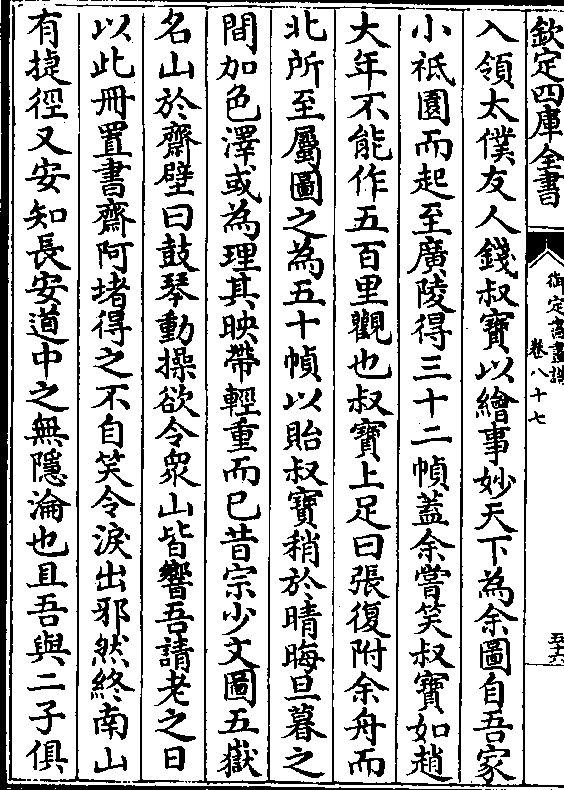 欽定四庫全書
御定書畫譜
卷八十七
五十六
入領太僕友人錢叔寶以繪事妙天下為余圖自吾家
小祗園而起至廣陵得三十二幀蓋余嘗笑叔寶如趙
大年不能作五百里觀也叔寶上足曰張復附余舟而
北所至屬圖之為五十幀以貽叔寶稍於晴晦旦暮之
間加色澤或為理其映帶輕重而已昔宗少文圖五嶽
名山於齋壁曰鼓琴動操欲令衆山皆響吾請老之日
以此冊置書齋阿堵得之不自笑令淚出邪然終南山
有捷徑又安知長安道中之無隱淪也且吾與二子俱